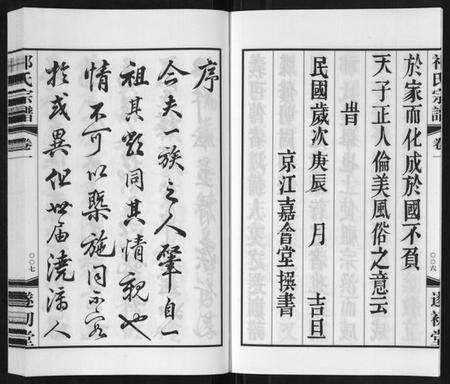 於家而化成於國不負
天子正人倫美風俗之意云
時
民國歲次庚辰 月 吉旦
京江嘉會堂撰書
氏宗譜 卷一
〇〇六
遂初堂
序
今夫一族之人肇自一
祖其貌同其情親也
情不可以槩施同不容
於或異但世屆澆漓人
氏宗譜 卷一
〇〇七
遂初堂